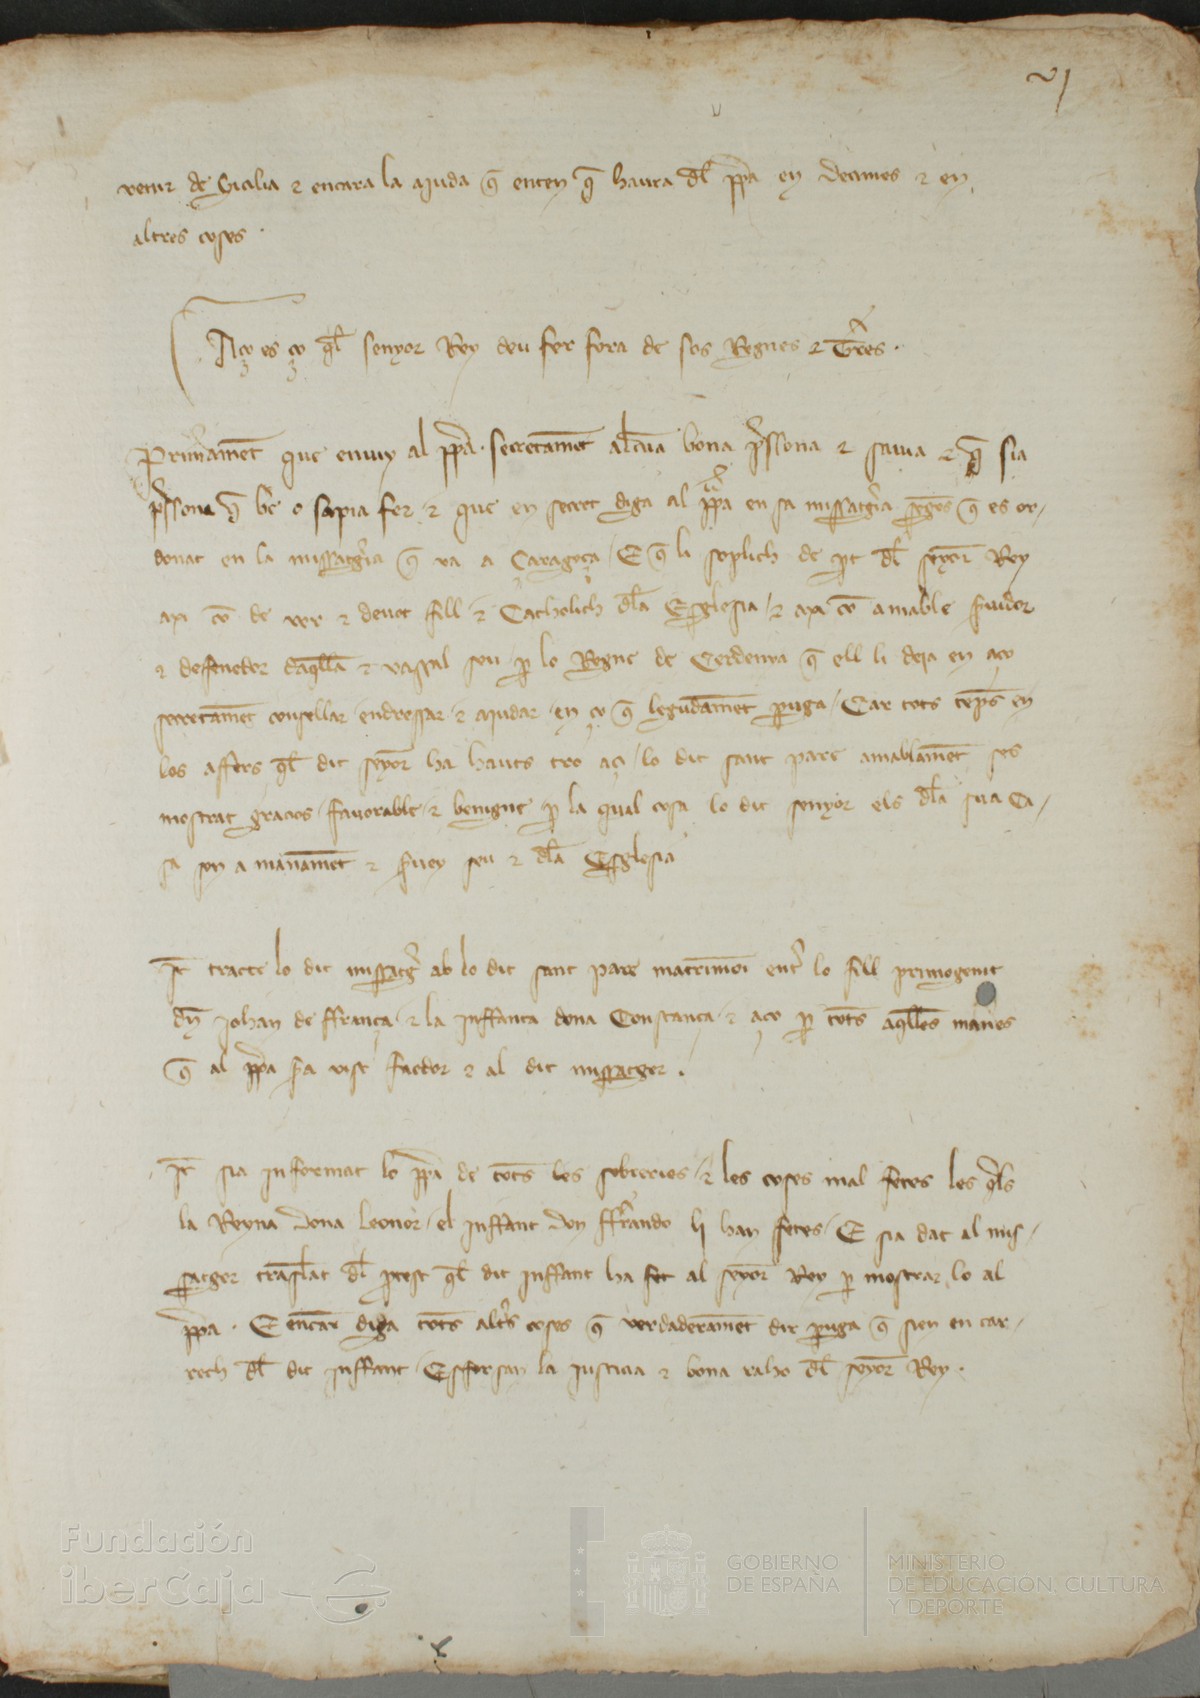 vj
venir de Sicilia & encara la ajuda q̄ enten q̄ haura dl̄ pp̄a en decimes & en
altres coses.
Aço es ço ql̄ senyor Rey deu fer fora de sos Regnes & tr̄es.
Primerament que enviy al pp̄a. secretamēt alcuna bona p̄ssona & savia & q̄ sia
p̄ssona q̄ be o sapia fer & que en secret diga al pp̄a en sa missatgia segons q̄ es or/
donat en la missatgia q̄ va a Caragoça / E q̄ li soplich de p̄t dl̄ seyor Rey
axi cō de ver & devot fill & Catholich dl̄a Esglesia / & axi cō amable servidor
& deffenedor daq̄lla & vassal seu p̄ lo Regne de Cerdenya q̄ ell li deja en aço
secretamēt consellar / endressar & ajudar / en ço q̄ legudamēt puga / Car tots tēps en
los affers ql̄ dit seyor ha hauts tro aci / lo dit sant pare amablamēt ses
mostrat gracios / favorable & benigne p̄ la qual cosa lo dit senyor els dl̄a sua Ca/
sa son a manamēt & servey seu & dl̄a Esglesia
It̄ tracte lo dit missatḡ ab lo dit sant pare matrimoi ent̄ lo fill primogenit
dn̄ Johan de ffrança / & la Inffanta dona Constança / & aço p̄ tots aq̄lles man̄es
q̄ al pp̄a sia vist faedor & al dit missatger.
It̄ sia informat lo pp̄a de totes les sobreries / & les coses mal fetes les q̄ls
la Reyna dona Leonor / el Inffant don fferrando li han fetes / E sia dat al mis/
satger translat dl̄ p̄cest ql̄ dit inffant ha fet al seyor Rey p̄ mostrar lo al
pp̄a. E encar diga tots alt̄s coses q̄ verdaderamēt dir puga q̄ sien en car/
rech dl̄ dit inffant / Esforsan la justicia & bona raho dl̄ seyor Rey.
Fundación
iberCaja
GOBIERNO
DE ESPAÑA
MINISTERIO
DE EDUCACIÓN, CULTURA
Y DEPORTE